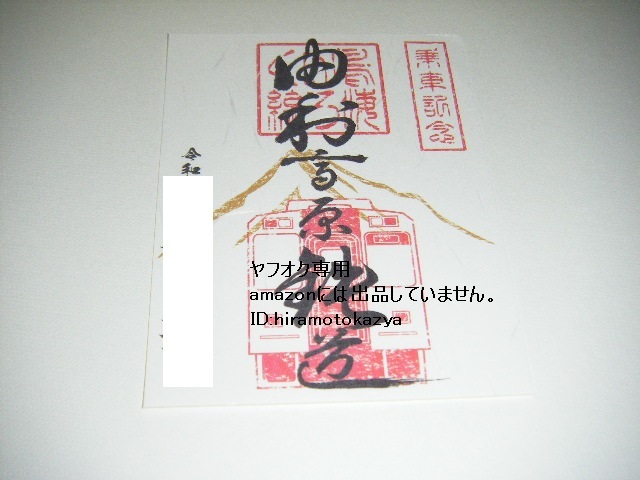 乗車記念
由利高原鉄道
令和
ヤフオク専用
amazonには出品していません。
ID:hiramotokazya